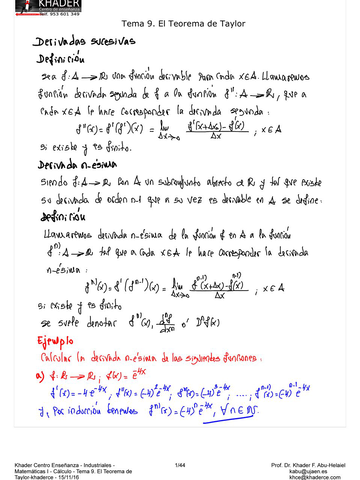 KHADER
Telf. 953 601 349
Tema 9. El Teorema de Taylor
Derivadas sucesivas
Definición
Sea f: A → R una función derivable para cada x∈A. Llamaremos
función derivada segunda de f a la función f'': A → R, que a
cada x∈A le hace corresponder la derivada segunda:
f''(x) = f'(f')(x) = lim Δx→0 f'(x+Δx) - f'(x) / Δx ; x∈A
si existe y es finito.
Derivada n-ésima
Siendo f: A → R con A un subconjunto abierto de R y tal que existe
su derivada de orden n-1 que a su vez es derivable en A se define:
definición
Llamaremos derivada n-ésima de la función f en A a la función
f^n): A → R tal que a cada x∈A le hace corresponder la derivada
n-ésima:
f^n)(x) = f'(f^n-1)(x) = lim Δx→0 f^n-1)(x+Δx) - f^n-1)(x) / Δx ; x∈A
si existe y es finito
se suele denotar f^n)(x), d^n f / dx^n o D^n f(x)
Ejemplo
Calcular la derivada n-ésima de las siguientes funciones:
a) f: R → R ; f(x) = e^-4x
f'(x) = -4 e^-4x, f''(x) = (-4)^2 e^-4x, f'''(x) = (-4)^3 e^-4x, ...., f^n-1)(x) = (-4)^n-1 e^-4x
y, por inducción tenemos f^n)(x) = (-4)^n e^-4x, ∀ n∈N.
Khader Centro Enseñanza - Industriales -
Matemáticas I - Cálculo - Tema 9. El Teorema de
Taylor-khaderce - 15/11/16
1/44
Prof. Dr. Khader F. Abu-Helaiel
kabu@ujaen.es
khce@khaderce.com